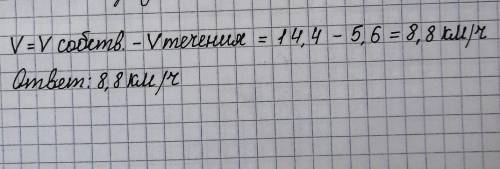 V = V собств. - V течения = 14,4 - 5,6 = 8,8 км/ч
Ответ: 8,8 км/ч